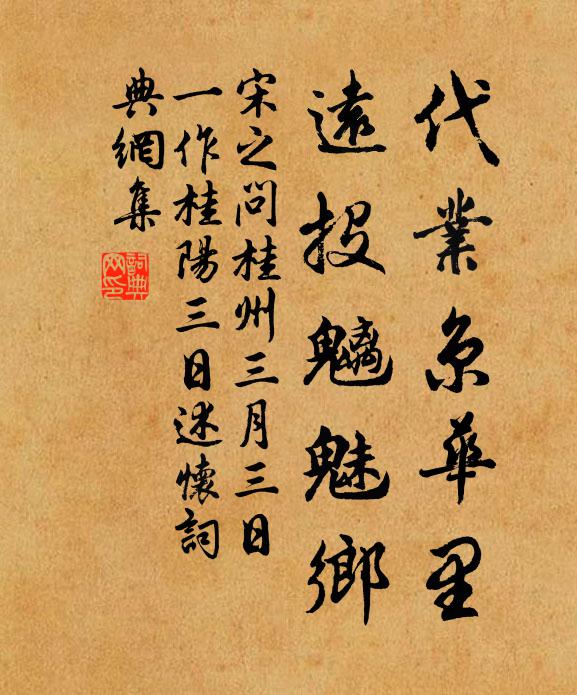 代業京華里
遠投魑魅鄉
宋之問桂州三月三日
一作桂陽三日述懷詞
典網集
詞典網印